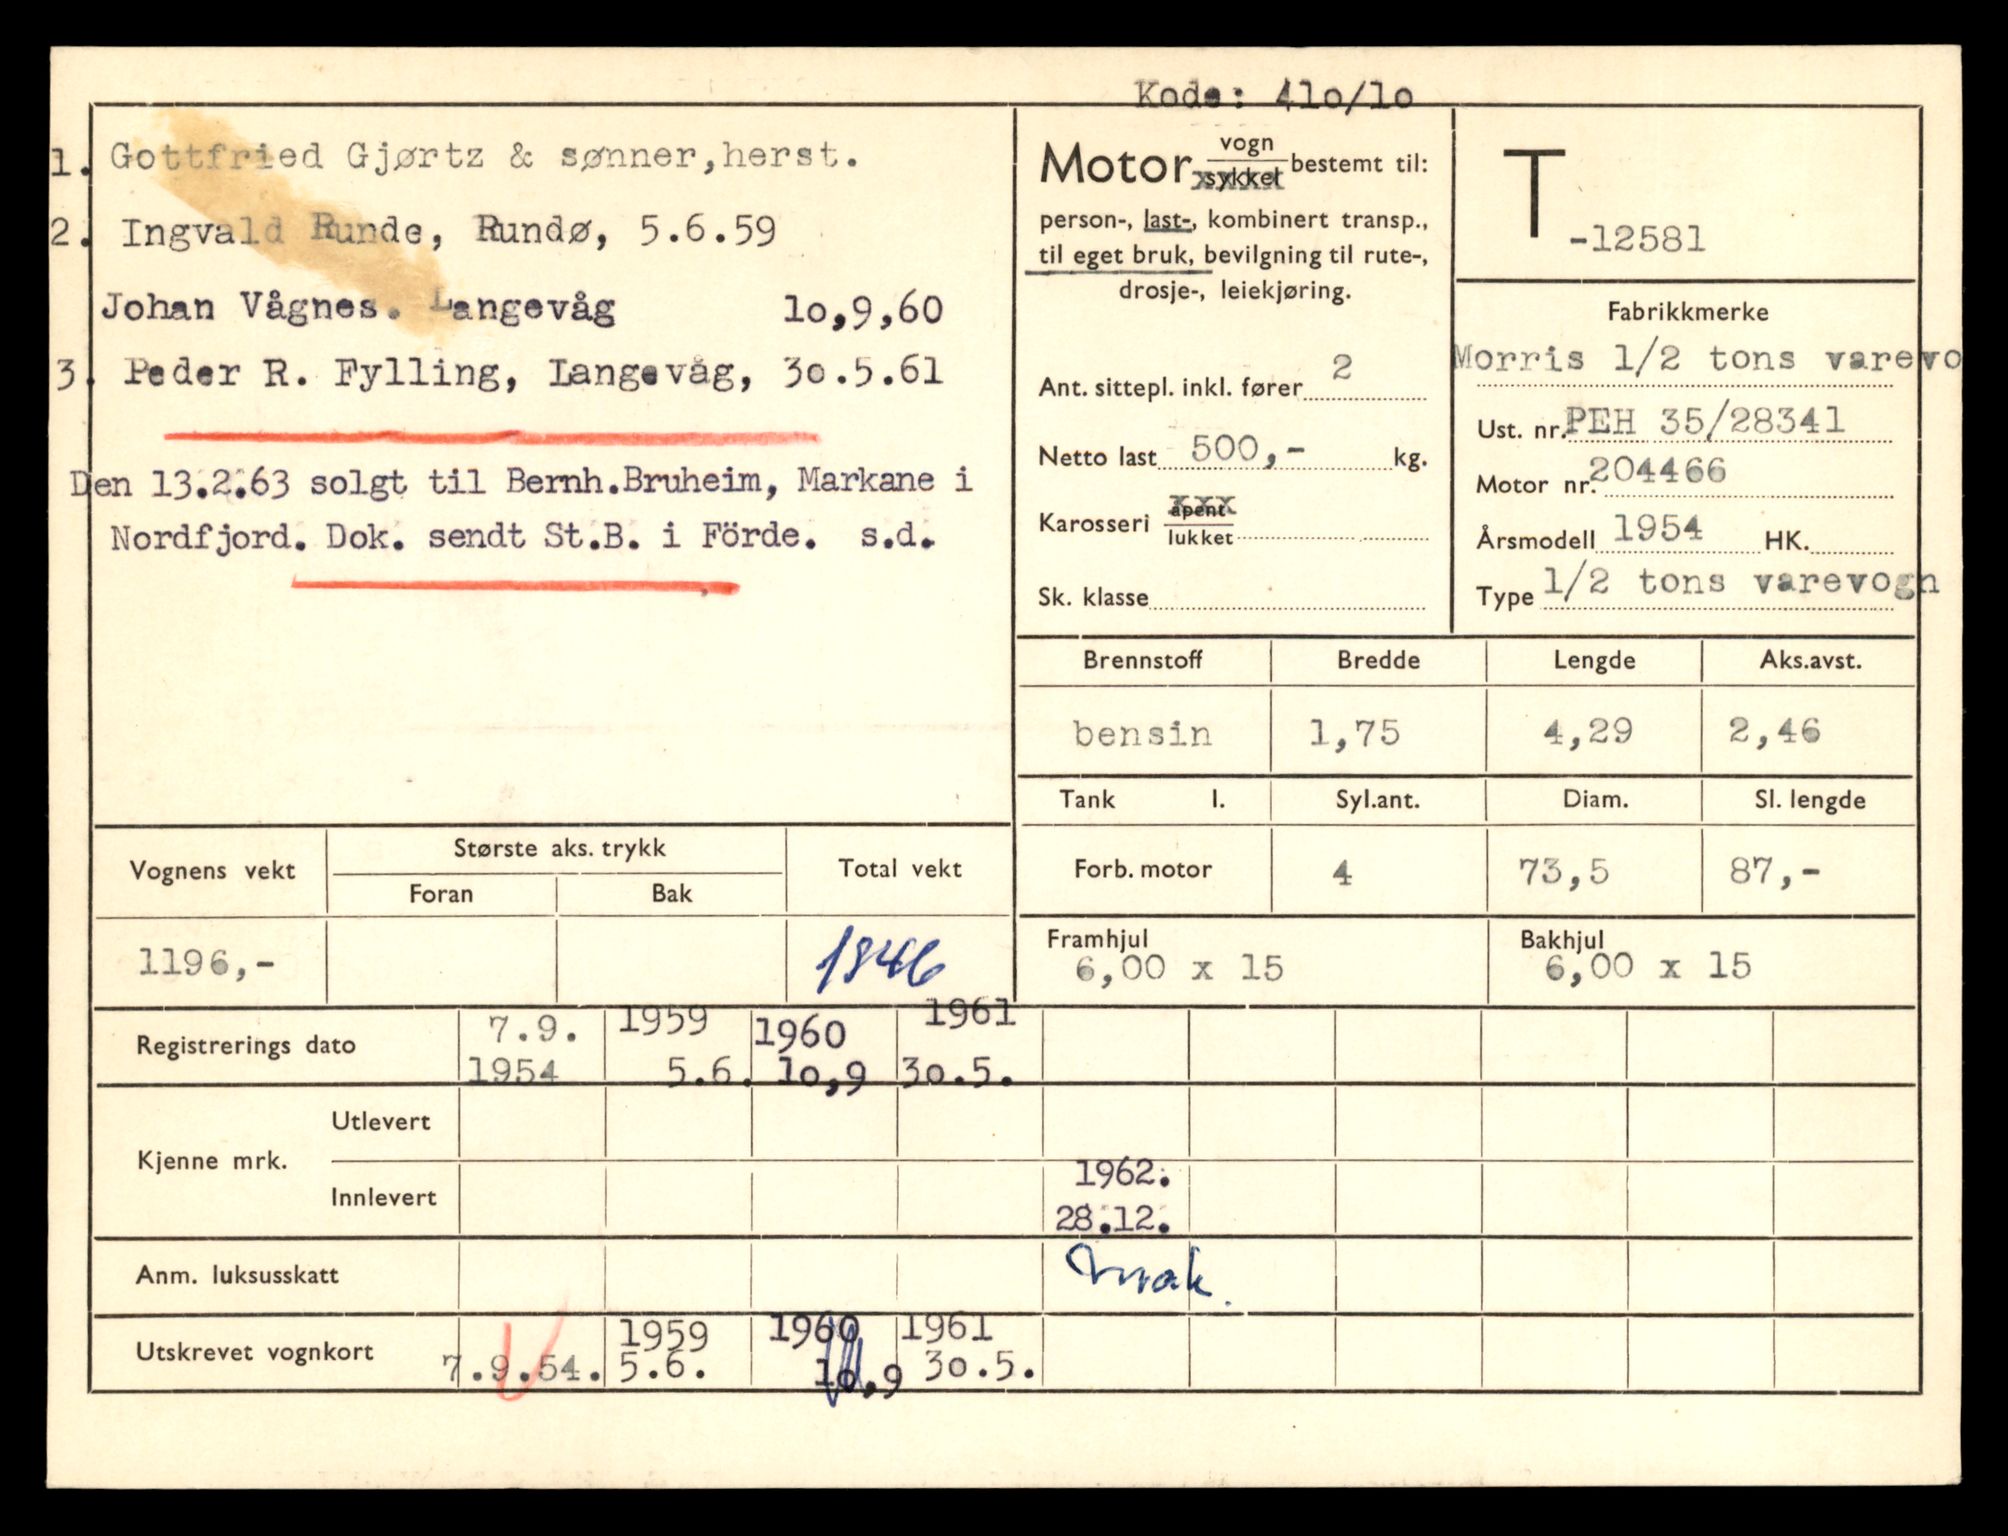 Kode: 41o/1o
1. Gottfried Gjørtz & sønner,herst.
2. Ingvald Runde, Rundø, 5.6.59
Johan Vågnes. Langevåg 1o,9,60
3. Peder R. Fylling, Langevåg, 3o.5.61
Den 13.2.63 solgt til Bernh.Bruheim, Markane i
Nordfjord. Dok. sendt St.B. i Förde. s.d.
Motor vogn sykkel bestemt til:
person-, last-, kombinert transp.,
til eget bruk, bevilgning til rute-,
drosje-, leiekjøring.
Ant. sittepl. inkl. fører 2
Netto last 500,- kg.
Karosseri åpent lukket
Sk. klasse
T -12581
Fabrikkmerke
Morris 1/2 tons varevo
Ust. nr. PEH 35/28341
Motor nr. 204466
Årsmodell 1954 HK.
Type 1/2 tons varevogn
Brennstoff Bredde Lengde Aks.avst.
bensin 1,75 4,29 2,46
Tank l. Syl.ant. Diam. Sl. lengde
Forb. motor 4 73,5 87,-
Framhjul Bakhjul
6,00 x 15 6,00 x 15
Vognens vekt Største aks. trykk Total vekt
Foran Bak
1196,- 1846
Registrerings dato 7.9. 1959 1960 1961
1954 5.6. 1o,9 3o.5.
Kjenne mrk.
Utlevert
Innlevert 1962.
28.12.
Anm. luksusskatt
Utskrevet vognkort 1959 1960 1961
7.9.54. 5.6. 1o,9 3o.5.